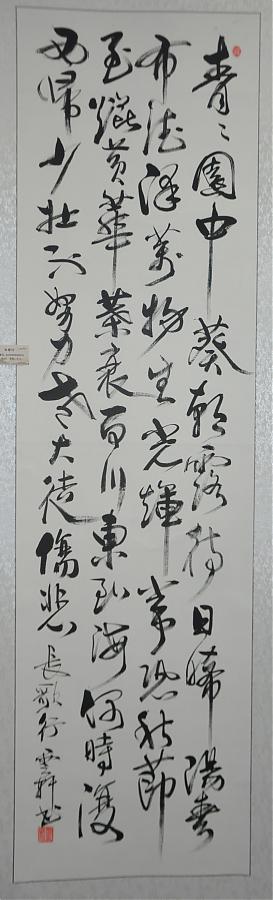 青青園中葵朝露待日晞陽春
布德澤萬物生光輝常恐秋節
至焜黃華葉衰百川東到海何時復
西歸少壯不努力老大徒傷悲 長歌行